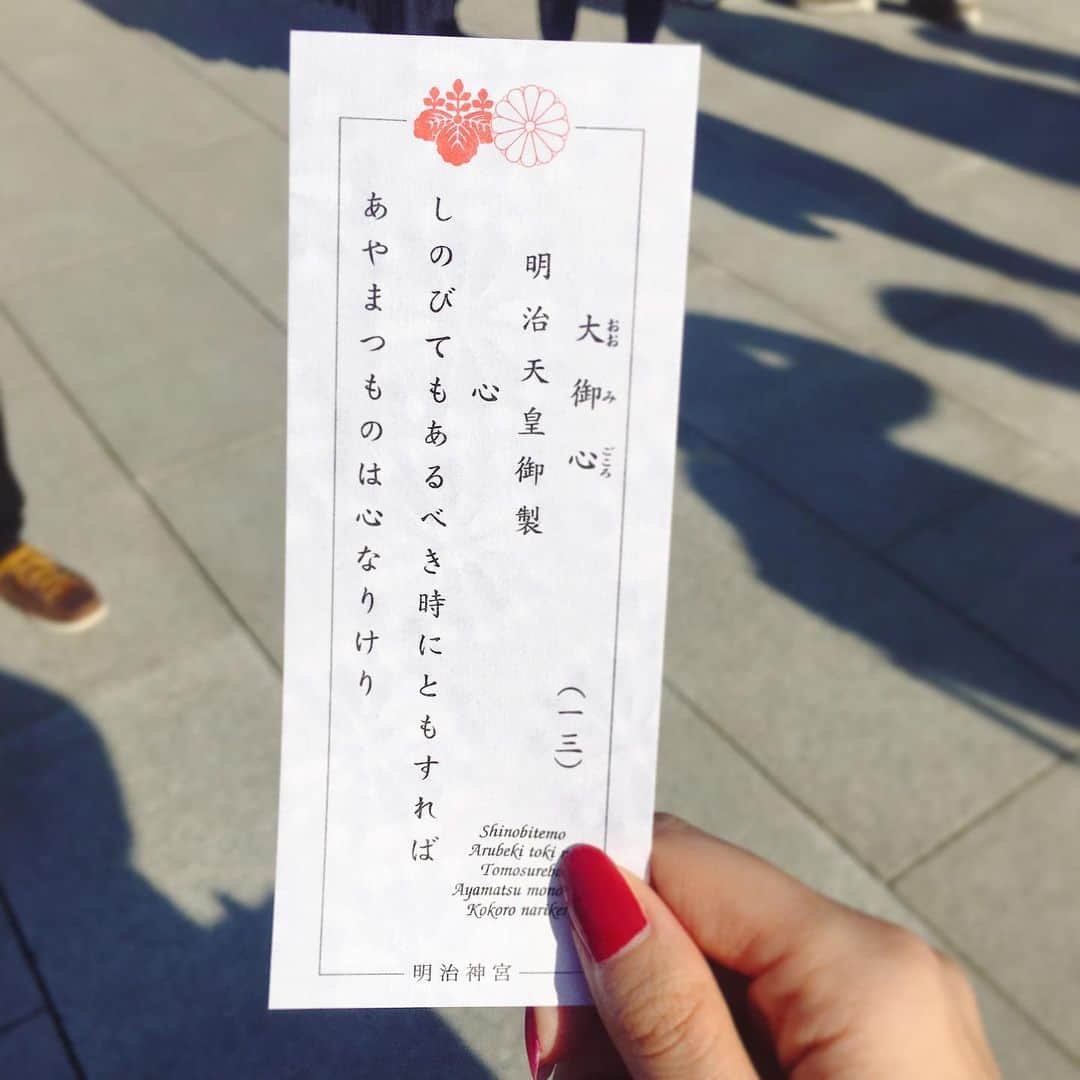 大御心
おおみごころ
(一三)
明治天皇御製
心
しのびてもあるべき時にともすれば
あやまつものは心なりけり
Shinobitemo
Arubeki toki
Tomosureba
Ayamatsu mono
Kokoro narikeri
明治神宮